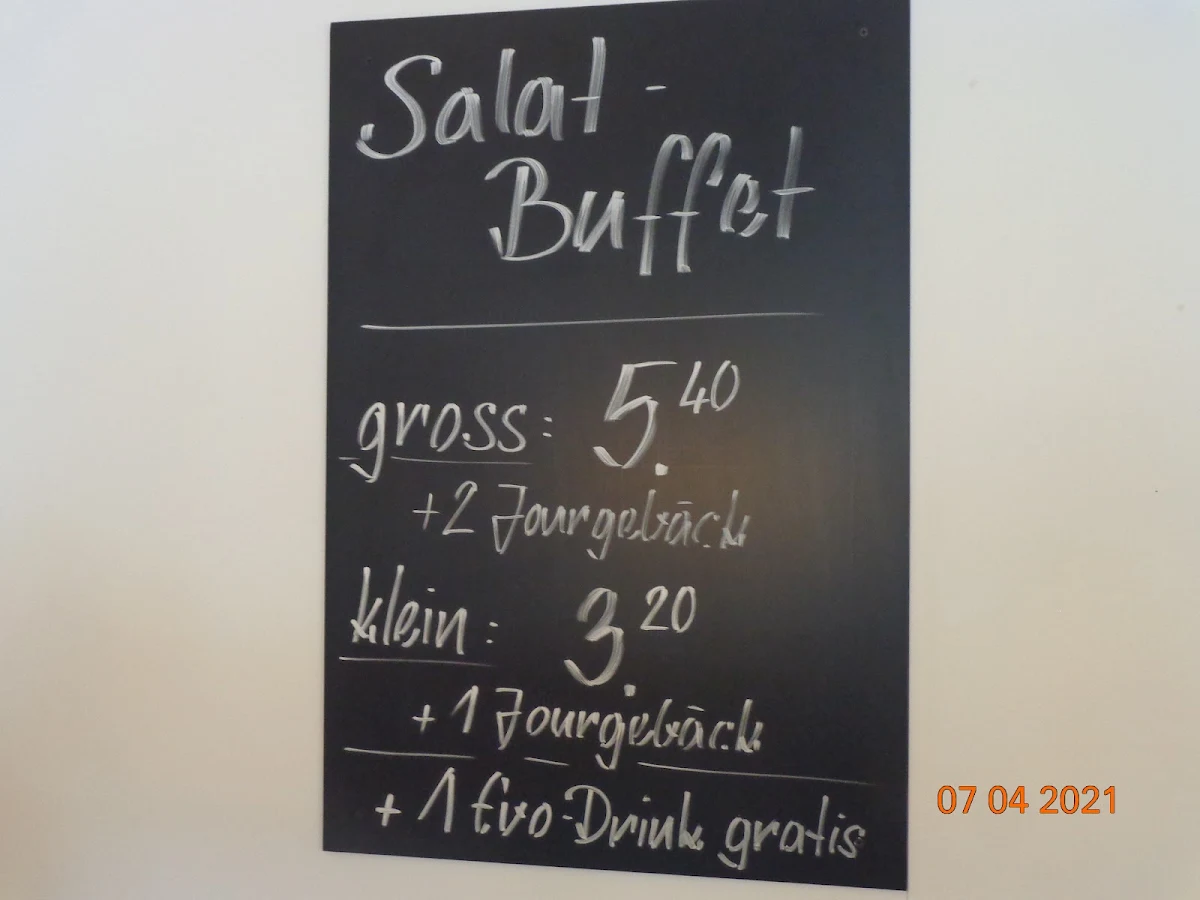 Salat-
Buffet
gross: 5.40
+2 Jourgebäck
klein: 3.20
+ 1 Jourgebäck
+ 1 Evo-Drink gratis
07 04 2021